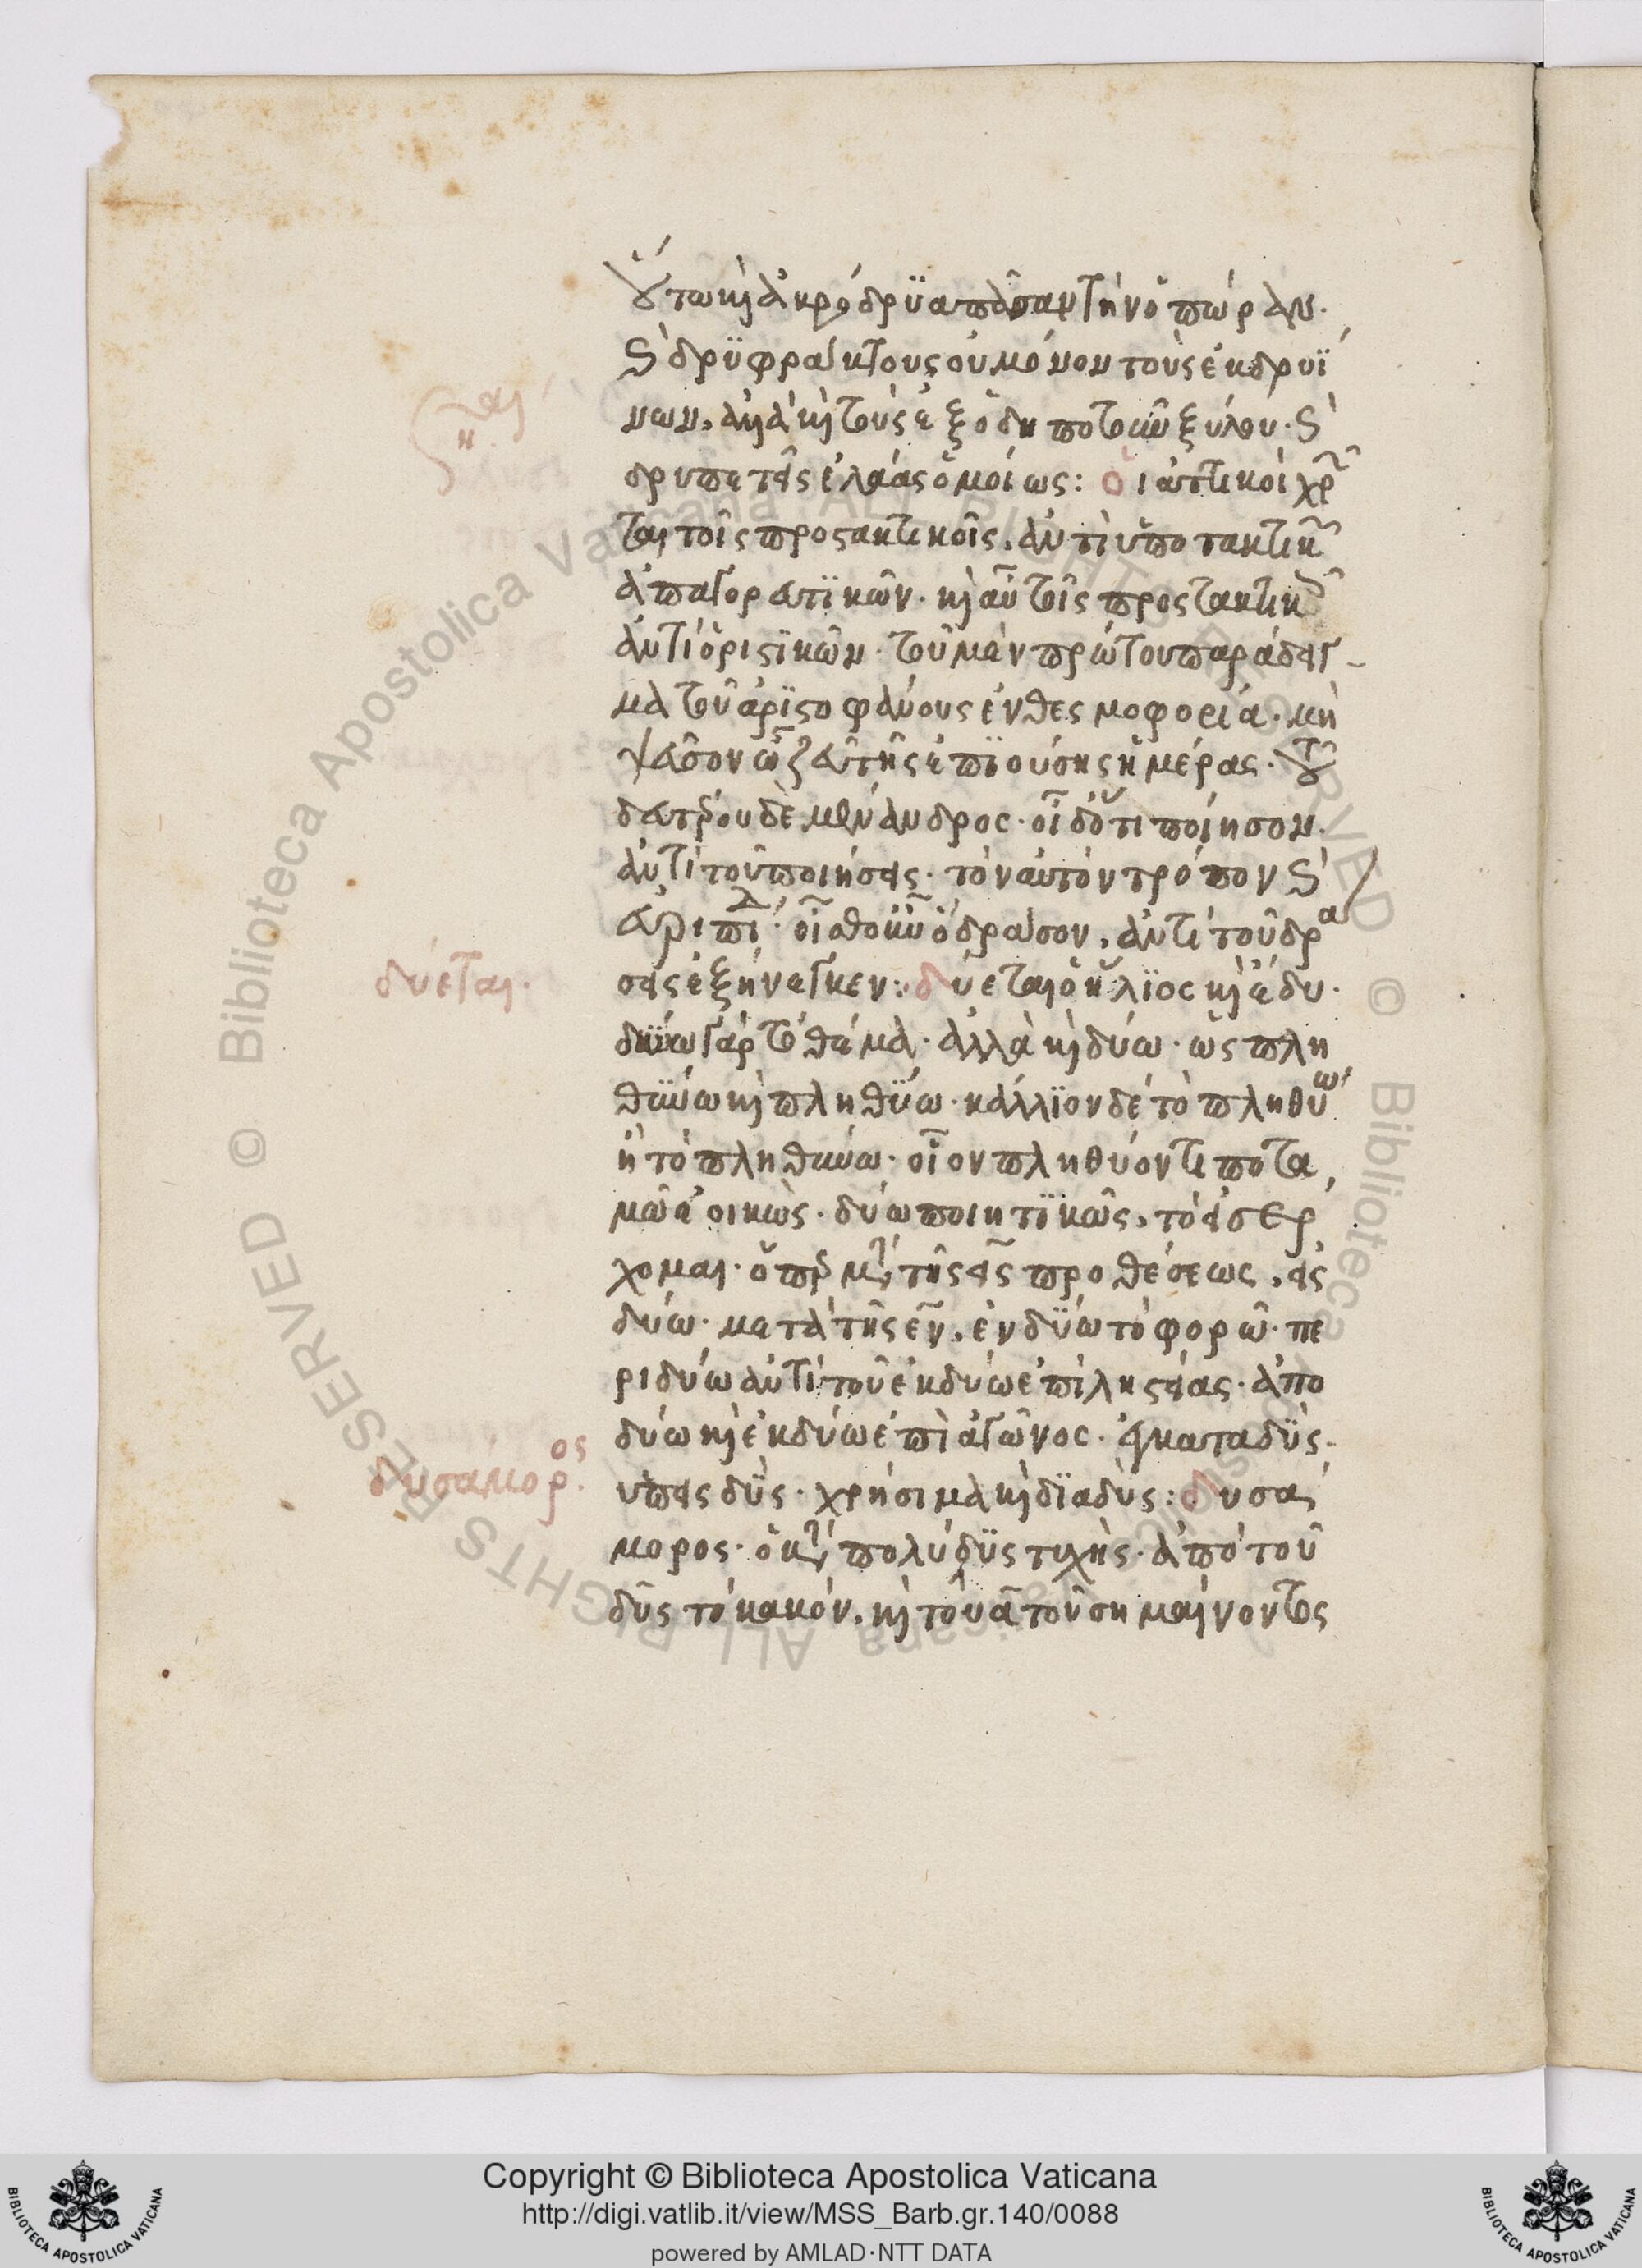 οὕτω καὶ ἀκρόδρϋα πᾶσαν τὴν ὀπώραν·
καὶ δρϋφράκτους οὐ μόνον τοὺς ἐκ δρυΐ
νων, ἀλλὰ καὶ τοὺς ἐξ ὁδηποτοῦν ξύλου· καὶ
δρυπετεῖς ἐλαίας ὁμοίως: οἱ ἀττικοὶ χρῶν
ται τοῖς προστακτικοῖς, ἀντὶ ὑποτακτικῶν
ἀπαγορατϊκῶν· καὶ αὖ τοῖς προστακτικοῖς
ἀντὶ ὁριστϊκῶν· τοῦ μὲν πρώτου παράδειγ
μα τοῦ ἀρϊστοφάνους ἐν θεσμοφορία· μὴ
ψεῦσον ὦ ζεῦ τῆς ἐπϊούσης ἡμέρας· τοῦ
δευτέρου δὲ μένανδρος· οἶδ' ὅτι ποίησον.
ἀντὶ τοῦ ποιήσεις· τὸν αὐτὸν τρόπον καὶ
εὐριπί· οἶσθ' οὖν ὃ δρᾶσον, ἀντὶ τοῦ δρα
δύεται·
σεις ἐξήνεγκεν: δύεται ὁ ἥλϊος καὶ ἔδυ·
δϋΐω γὰρ τὸ θέμα· ἀλλὰ καὶ δύω· ὡς πλη
θϋνω καὶ πληθϋω· κάλλϊον δὲ τὸ πληθύω
ἢ τὸ πληθύνω· οἷον πληθύοντι ποτα
μῷ ἐοικώς· δύω ποιητϊκῶς, τὸ εἰσέρ
χομαι· ὅπερ μετὰ τῆς εἰς προθέσεως, εἰς
δύω· μετὰ τῆς ἐν, ἐνδϋω τὸ φορῶ· πε
ριδύω ἀντὶ τοῦ ἐκδύω ἐπὶ ληστείας· ἀπο
δύω καὶ ἐκδύω ἐπὶ ἀγῶνος· καταδϋς·
δυσάμορος.
ὑπεισδϋς· χρήσιμα καὶ δϊαδύς: δυσά
μορος· ὁ κατὰ πολὺ δϋστυχής· ἀπὸ τοῦ
δῦς τὸ κακόν, καὶ τοῦ ἀ τοῦ σημαίνοντος
Copyright © Biblioteca Apostolica Vaticana
http://digi.vatlib.it/view/MSS_Barb.gr.140/0088
powered by AMLAD·NTT DATA
BIBLIOTECA APOSTOLICA VATICANA
BIBLIOTECA APOSTOLICA VATICANA